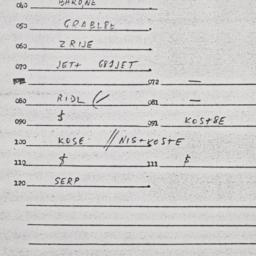 040 BARONE
050 GRABLJE
060 ZRIJE
070 JET+ GBJJET
072 —
080 RIDL (✓ 081 —
090 $ 091 KOS+SE
100 KOSE // NIS+KOSTE
110 $ 111 $
120 SERP